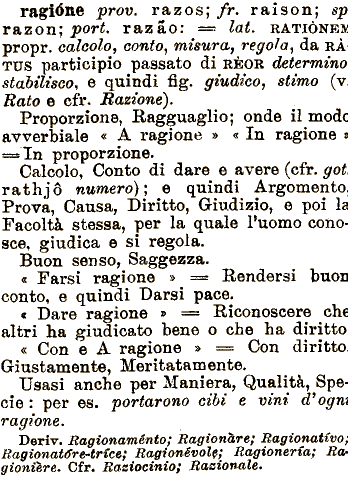 ragióne prov. razos; fr. raison; sp
razon; port. razão: = lat. RATIÓNEM
propr. calcolo, conto, misura, regola, da RÀ-
TUS participio passato di RÈOR determino
stabilisco, e quindi fig. giudico, stimo (v.
Rato e cfr. Razione).
Proporzione, Ragguaglio; onde il modo
avverbiale « A ragione » « In ragione »
= In proporzione.
Calcolo, Conto di dare e avere (cfr. got.
rathjô numero); e quindi Argomento,
Prova, Causa, Diritto, Giudizio, e poi la
Facoltà stessa, per la quale l'uomo cono-
sce, giudica e si regola.
Buon senso, Saggezza.
« Farsi ragione » = Rendersi buon
conto, e quindi Darsi pace.
« Dare ragione » = Riconoscere che
altri ha giudicato bene o che ha diritto
« Con e A ragione » = Con diritto,
Giustamente, Meritatamente.
Usasi anche per Maniera, Qualità, Spe-
cie: per es. portarono cibi e vini d'ogni
ragione.
Deriv. Ragionaménto; Ragionàre; Ragionatívo;
Ragionatóre-tríce; Ragionévole; Ragionería; Ra-
gionière. Cfr. Raziocinio; Razionale.